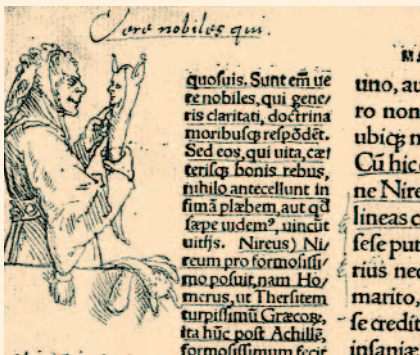 Vere nobiles qui.
quosuis. Sunt em̃ ue
re nobiles, qui gene/
ris claritati, doctrina
moribusqȝ respõdẽt.
Sed eos, qui uita, cæt
terisqȝ bonis rebus,
nihilo antecellunt in
fimã plæbem, aut qđ
sæpe uidemꝰ, uincũt
uitijs. Nireus) Ni/
reum pro formosissi/
mo posuit, nam Ho/
merus, ut Thersitem
turpissimũ Græcoꝝ,
ita hũc post Achillẽ,
formosissimum fecit
uno, au
ro non
ubiqȝ n
Cũ hic
ne Nire
lineas c
sese put
rius nec
marito,
se credit
insaniæ